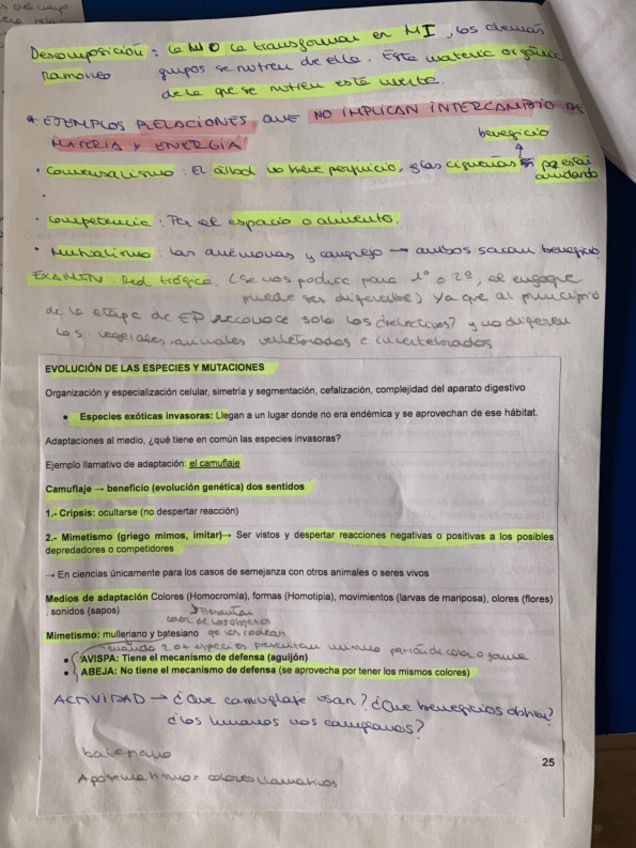 Descomposición: la MO la transforman en MI, los demás
ramoneo grupos se nutren de ella. Esta materia orgánica
de la que se nutren está muerta.
* EJEMPLOS RELACIONES QUE NO IMPLICAN INTERCAMBIO DE
MATERIA Y ENERGÍA:
beneficio
• Comensalismo: El árbol no tiene perjuicio, y las cigüeñas
anidando
•
• Competencia: Por el espacio o alimento.
• Mutualismo: las anémonas y cangrejo → ambos sacan beneficio
EXAMEN. Red trófica. (Se nos podría para 1º o 2º, el enfoque
puede ser diferente) Ya que al principio
de la etapa de EP reconoce solo los ¿selectivos? y no difieren
los vegetales animales vertebrados e invertebrados
EVOLUCIÓN DE LAS ESPECIES Y MUTACIONES
Organización y especialización celular, simetría y segmentación, cefalización, complejidad del aparato digestivo
• Especies exóticas invasoras: Llegan a un lugar donde no era endémica y se aprovechan de ese hábitat.
Adaptaciones al medio, ¿qué tiene en común las especies invasoras?
Ejemplo llamativo de adaptación: el camuflaje
Camuflaje → beneficio (evolución genética) dos sentidos
1.- Cripsis: ocultarse (no despertar reacción)
2.- Mimetismo (griego mimos, imitar)→ Ser vistos y despertar reacciones negativas o positivas a los posibles
depredadores o competidores
→ En ciencias únicamente para los casos de semejanza con otros animales o seres vivos
Medios de adaptación Colores (Homocromía), formas (Homotipia), movimientos (larvas de mariposa), olores (flores)
, sonidos (sapos)
Presentan
color de los objetos
Mimetismo: mulleriano y batesiano que los rodean
cuando 2 o + especies presentan mismo patrón de color o forma
• AVISPA: Tiene el mecanismo de defensa (aguijón)
• ABEJA: No tiene el mecanismo de defensa (se aprovecha por tener los mismos colores)
ACTIVIDAD → ¿Que camuflaje usan? ¿Que beneficios obtien?
¿los humanos nos camuflamos?
batesiano
Aposematismo: colores llamativos
25